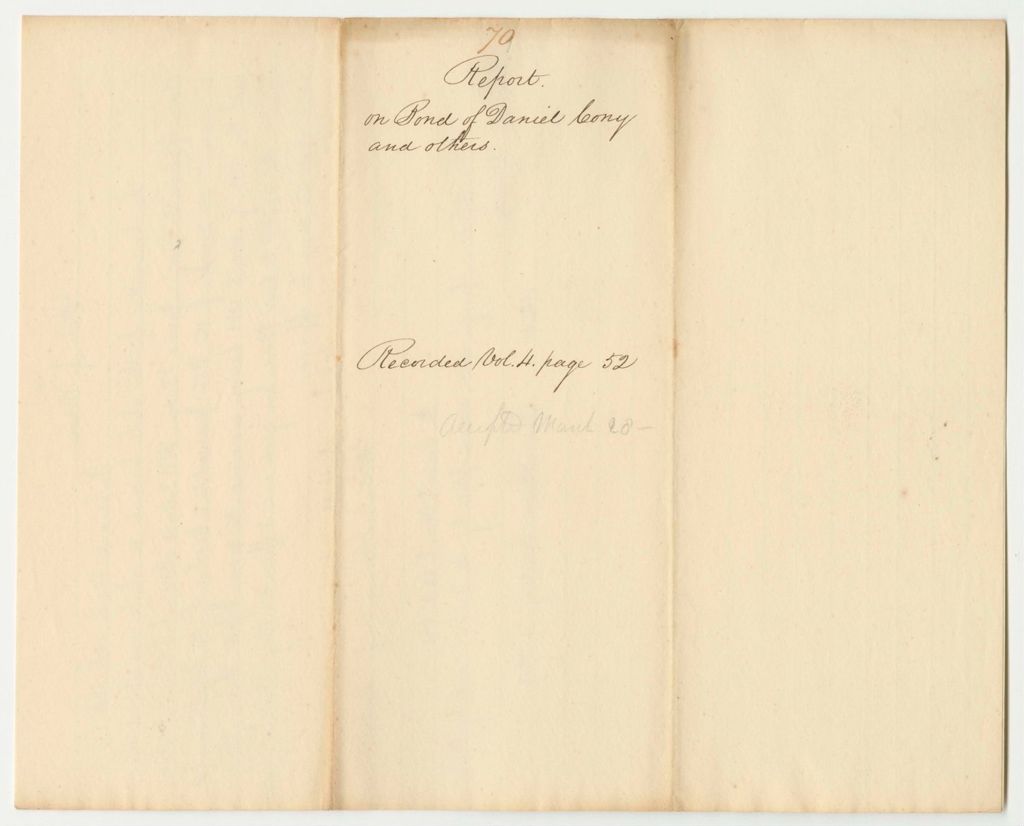 70
Report.
on Bond of Daniel Cony
and others.
Recorded Vol. 4. page 52
Accepted March 28 —